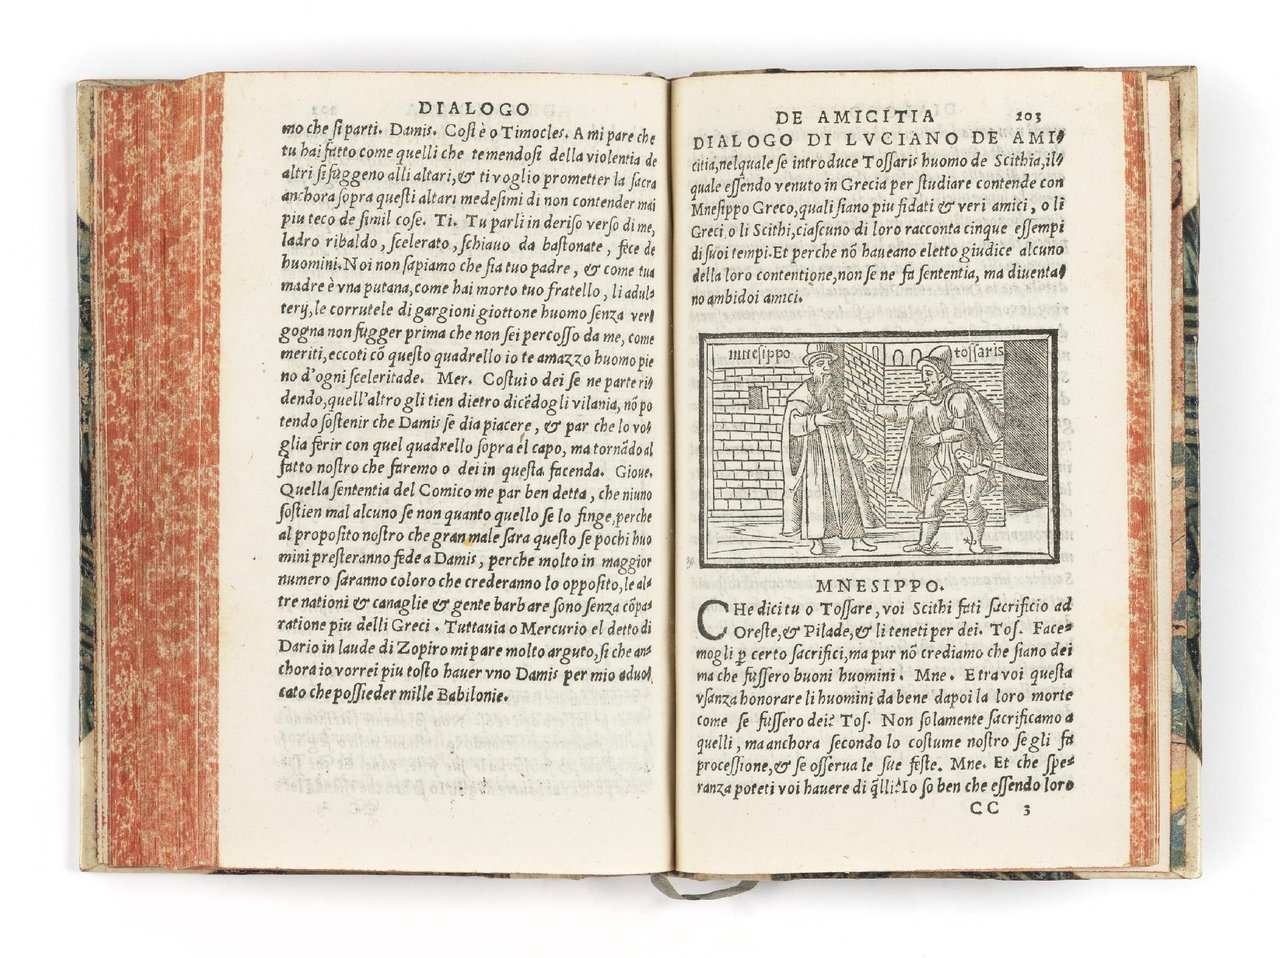 DIALOGO
mo che si parti. Damis. Cosi è o Timocles. A mi pare che
tu hai fatto come quelli che temendosi della violentia de
altri si fuggeno alli altari, & ti voglio prometter la sacra
anchora sopra questi altari medesimi di non contender mai
piu teco de simil cose. Ti. Tu parli in deriso verso di me,
ladro ribaldo, scelerato, schiauo da bastonate, fece de
huomini. Noi non sapiamo che sia tuo padre, & come tua
madre è vna putana, come hai morto tuo fratello, li adul-
terij, le corrutele di gargioni giottone huomo senza ver-
gogna non fugger prima che non sei percosso da me, come
meriti, eccoti cõ questo quadrello io te amazzo huomo pie
no d'ogni sceleritade. Mer. Costui o dei se ne parte ri-
dendo, quell'altro gli tien dietro dicẽdogli vilania, nõ po
tendo sostenir che Damis se dia piacere, & par che lo vo-
glia ferir con quel quadrello sopra el capo, ma tornãdo al
fatto nostro che faremo o dei in questa facenda. Gioue.
Quella sententia del Comico me par ben detta, che niuno
sostien mal alcuno se non quanto quello se lo finge, perche
al proposito nostro che gran male sara questo se pochi huo
mini presteranno fede a Damis, perche molto in maggior
numero saranno coloro che crederanno lo opposito, le al-
tre nationi & canaglie & gente barbare sono senza cõpa-
ratione piu delli Greci. Tuttauia o Mercurio el detto di
Dario in laude di Zopiro mi pare molto arguto, si che an-
chora io vorrei piu tosto hauer vno Damis per mio aduo-
cato che possieder mille Babilonie.
DE AMICITIA 203
DIALOGO DI LVCIANO DE AMI-
citia, nel quale se introduce Tossaris huomo de Scithia, il-
quale essendo venuto in Grecia per studiare contende con
Mnesippo Greco, quali siano piu fidati & veri amici, o li
Greci, o li Scithi, ciascuno di loro racconta cinque essempi
di suoi tempi. Et perche nõ haueano eletto giudice alcuno
della loro contentione, non se ne fa sententia, ma diuenta-
no ambidoi amici.
mnesippo tossaris
MNESIPPO.
CHe dici tu o Tossare, voi Scithi fati sacrificio ad
Oreste, & Pilade, & li teneti per dei. Tos. Face-
mogli ꝑ certo sacrifici, ma pur nõ crediamo che siano dei
ma che fussero buoni huomini. Mne. Et ra voi questa
vsanza honorare li huomini da bene dapoi la loro morte
come se fussero dei? Tos. Non solamente sacrificamo a
quelli, ma anchora secondo lo costume nostro se gli fa
processione, & se osserua le sue feste. Mne. Et che spe-
ranza poteti voi hauere di q̃lli? Io so ben che essendo loro
CC 3